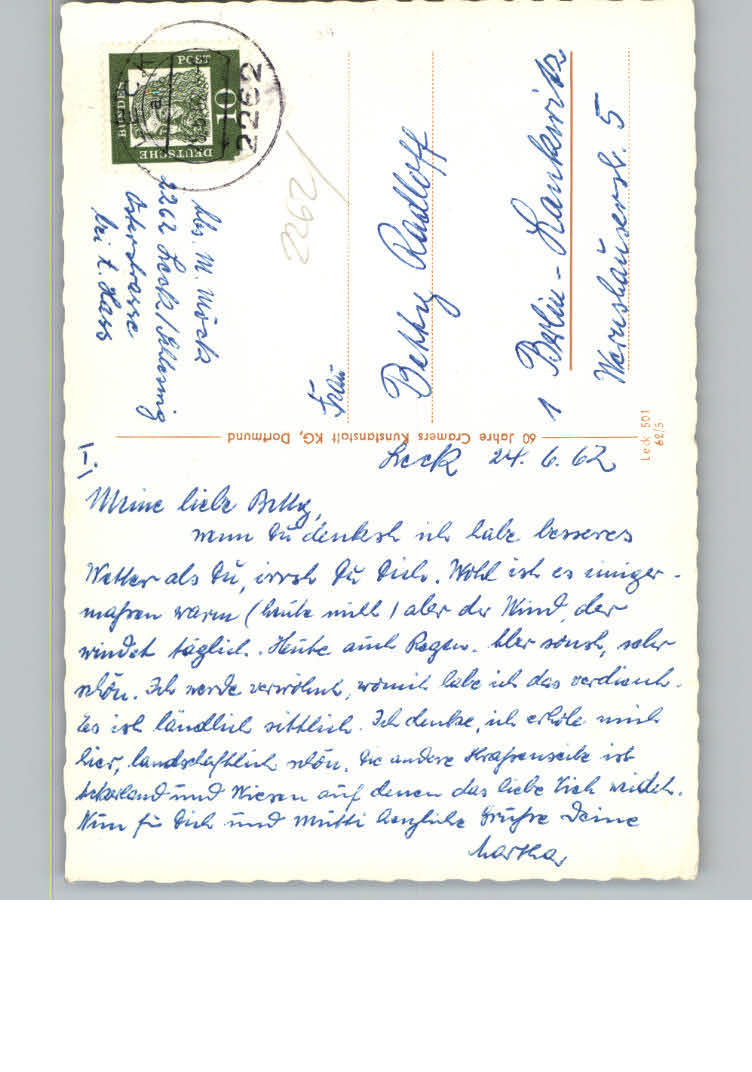 DEUTSCHE
BUNDES
POST
10
2262
2262
Abs. M. Mock
2262 Leck/Schleswig
Osterstrasse
bei t. Hass
Frau
Betty Radloff
1 Berlin-Lankwitz
Wernshäuserstr. 5
60 Jahre Cramers Kunstanstalt KG, Dortmund
Leck 501
62/5
Leck 24. 6. 62
Meine liebe Betty,
wenn Du denkst ich habe besseres
Wetter als Du, irrst Du Dich. Wohl ist es einiger-
maßen warm (heute nicht) aber der Wind, der
windet täglich. Heute auch Regen. Aber sonst, sehr
schön. Ich werde verwöhnt, womit habe ich das verdient.
Es ist ländlich sittlich. Ich denke, ich erhole mich
hier, landschaftlich schön. Die andere Straßenseite ist
Ackerland und Wiesen auf denen das liebe Vieh weidet.
Nun für Dich und Mutti herzliche Grüße Deine
Martha,